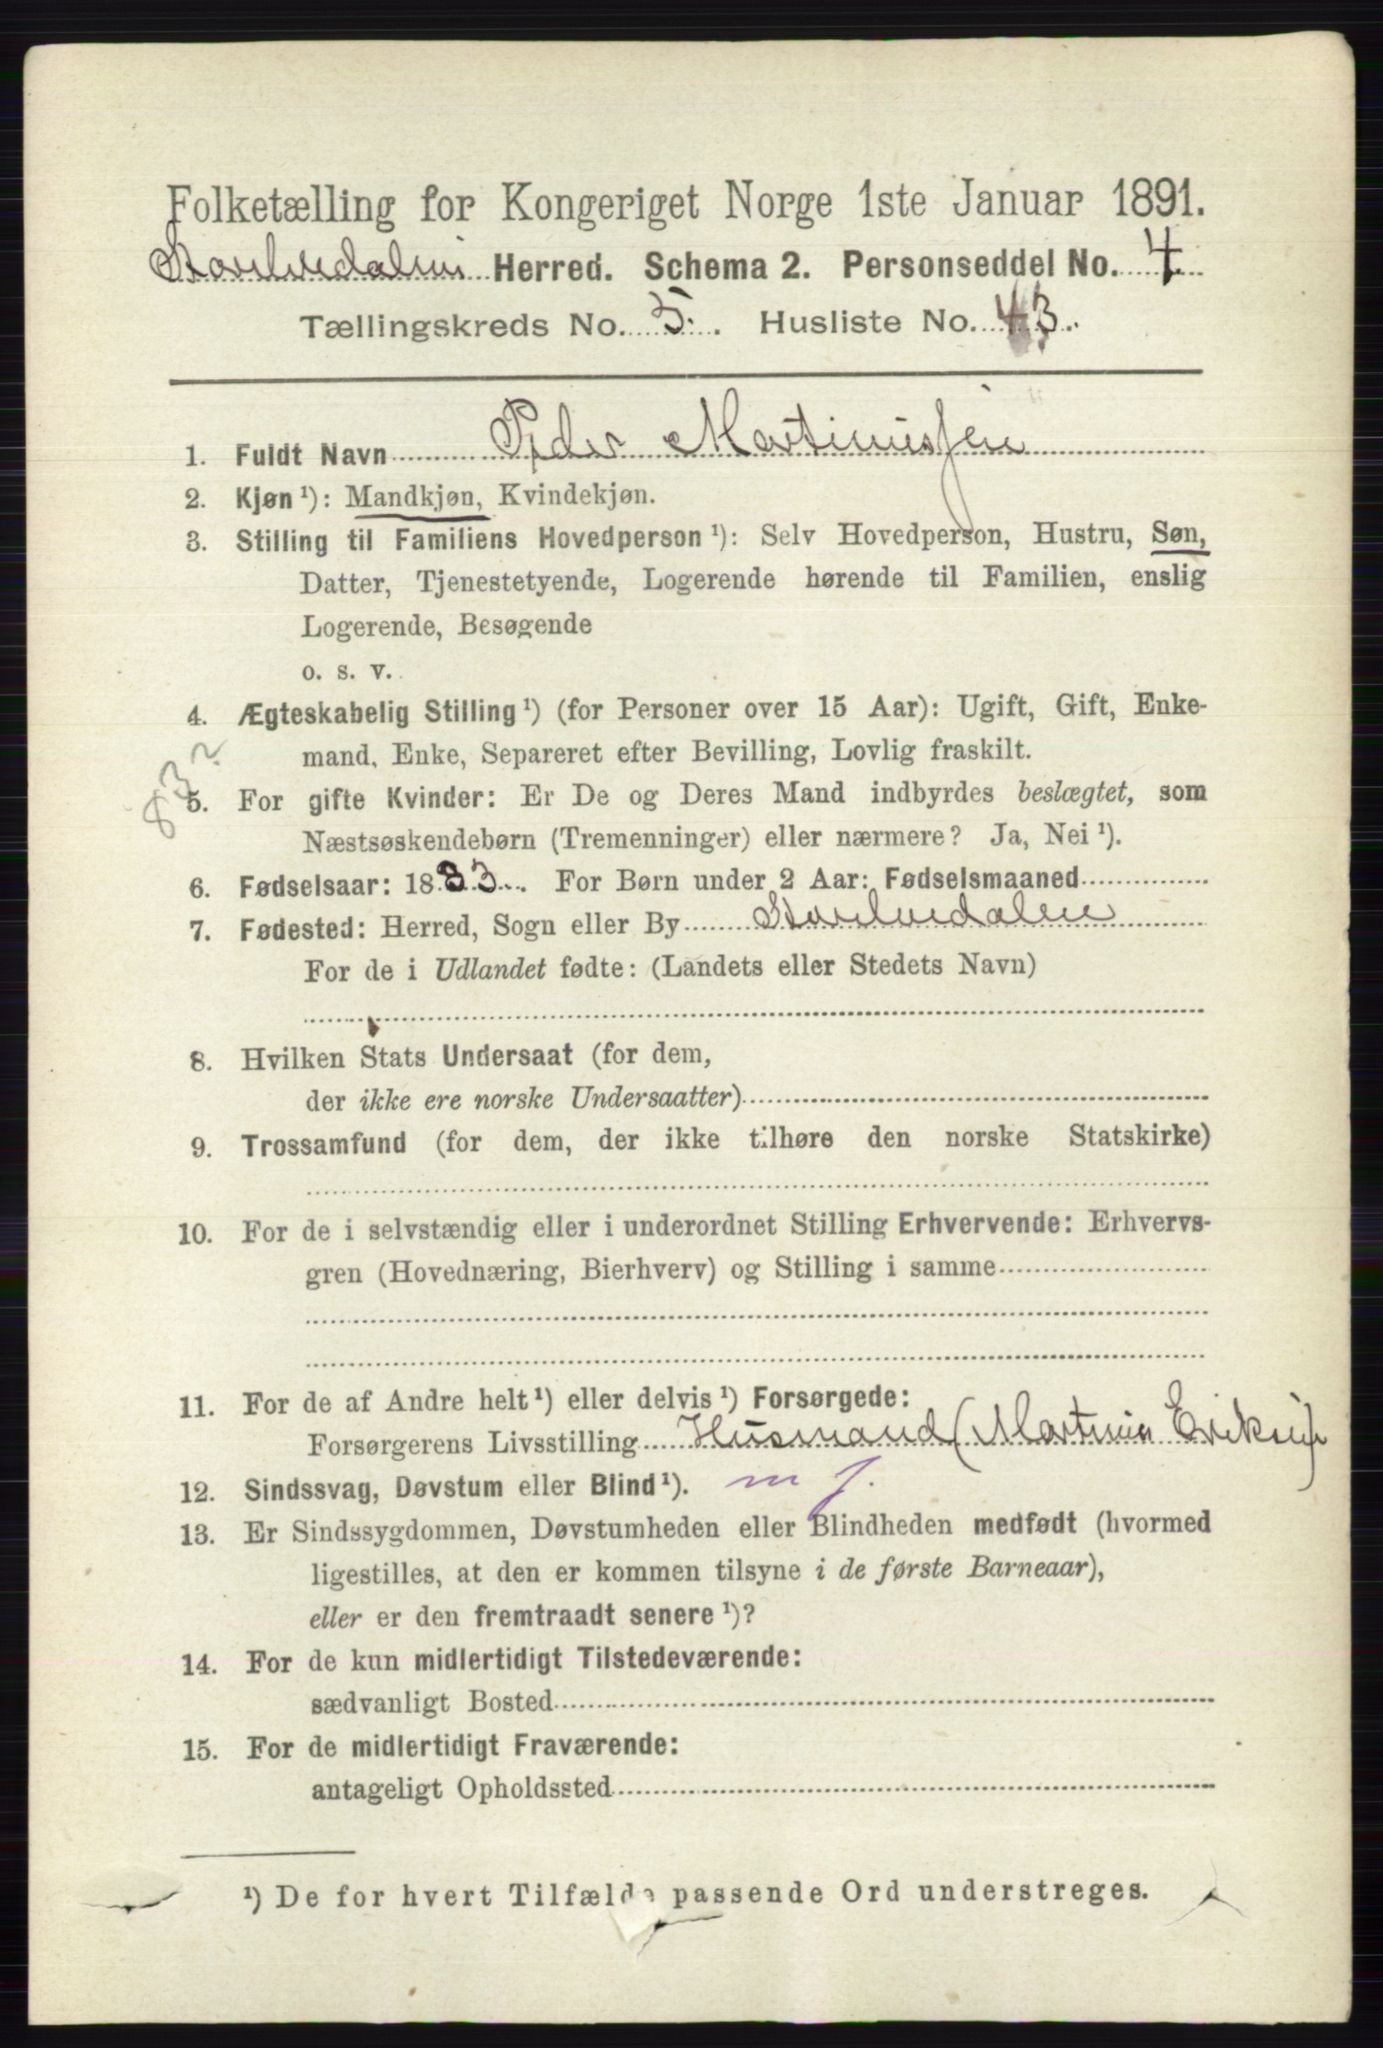 Folketælling for Kongeriget Norge 1ste Januar 1891.
Storelvedalens Herred. Schema 2. Personseddel No. 4
Tællingskreds No. 5. Husliste No. 43.
1. Fuldt Navn Peder Martinussen
2. Kjøn ¹): Mandkjøn, Kvindekjøn.
3. Stilling til Familiens Hovedperson ¹): Selv Hovedperson, Hustru, Søn,
Datter, Tjenestetyende, Logerende hørende til Familien, enslig
Logerende, Besøgende
o. s. v.
4. Ægteskabelig Stilling ¹) (for Personer over 15 Aar): Ugift, Gift, Enke-
mand, Enke, Separeret efter Bevilling, Lovlig fraskilt.
83?
5. For gifte Kvinder: Er De og Deres Mand indbyrdes beslægtet, som
Næstsøskendebørn (Tremenninger) eller nærmere? Ja, Nei ¹).
6. Fødselsaar: 1883. For Børn under 2 Aar: Fødselsmaaned
7. Fødested: Herred, Sogn eller By Storelvedalen
For de i Udlandet fødte: (Landets eller Stedets Navn)
8. Hvilken Stats Undersaat (for dem,
der ikke ere norske Undersaatter)
9. Trossamfund (for dem, der ikke tilhøre den norske Statskirke)
10. For de i selvstændig eller i underordnet Stilling Erhvervende: Erhvervs-
gren (Hovednæring, Bierhverv) og Stilling i samme
11. For de af Andre helt ¹) eller delvis ¹) Forsørgede:
Forsørgerens Livsstilling Husmand (Martinus Eriksen)
12. Sindssvag, Døvstum eller Blind ¹). m j.
13. Er Sindssygdommen, Døvstumheden eller Blindheden medfødt (hvormed
ligestilles, at den er kommen tilsyne i de første Barneaar),
eller er den fremtraadt senere ¹)?
14. For de kun midlertidigt Tilstedeværende:
sædvanligt Bosted
15. For de midlertidigt Fraværende:
antageligt Opholdssted
¹) De for hvert Tilfælde passende Ord understreges.